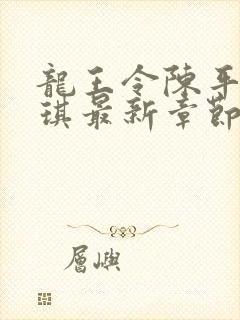 龍王令陳平
琪最新章節
層嶼